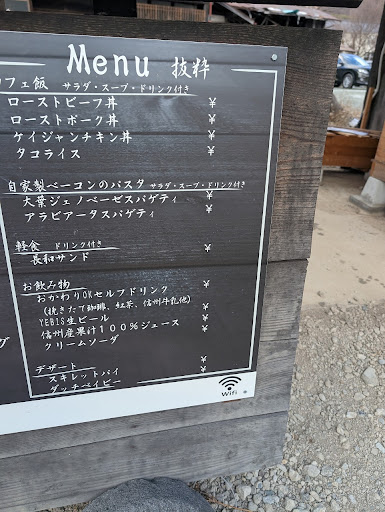 Menu 抜粋
カフェ飯 サラダ・スープ・ドリンク付き ¥
ローストビーフ丼 ¥
ローストポーク丼 ¥
ケイジャンチキン丼 ¥
タコライス ¥
自家製ベーコンのパスタ サラダ・スープ・ドリンク付き
大葉ジェノベーゼスパゲティ ¥
アラビアータスパゲティ ¥
軽食 ドリンク付き ¥
長和サンド
お飲み物 ¥
おかわりOKセルフドリンク
(挽きたて珈琲、紅茶、信州牛乳他) ¥
YEBIS生ビール ¥
信州産果汁100%ジュース ¥
クリームソーダ
デザート ¥
スキレットパイ ¥
ダッチベイビー
Wifi